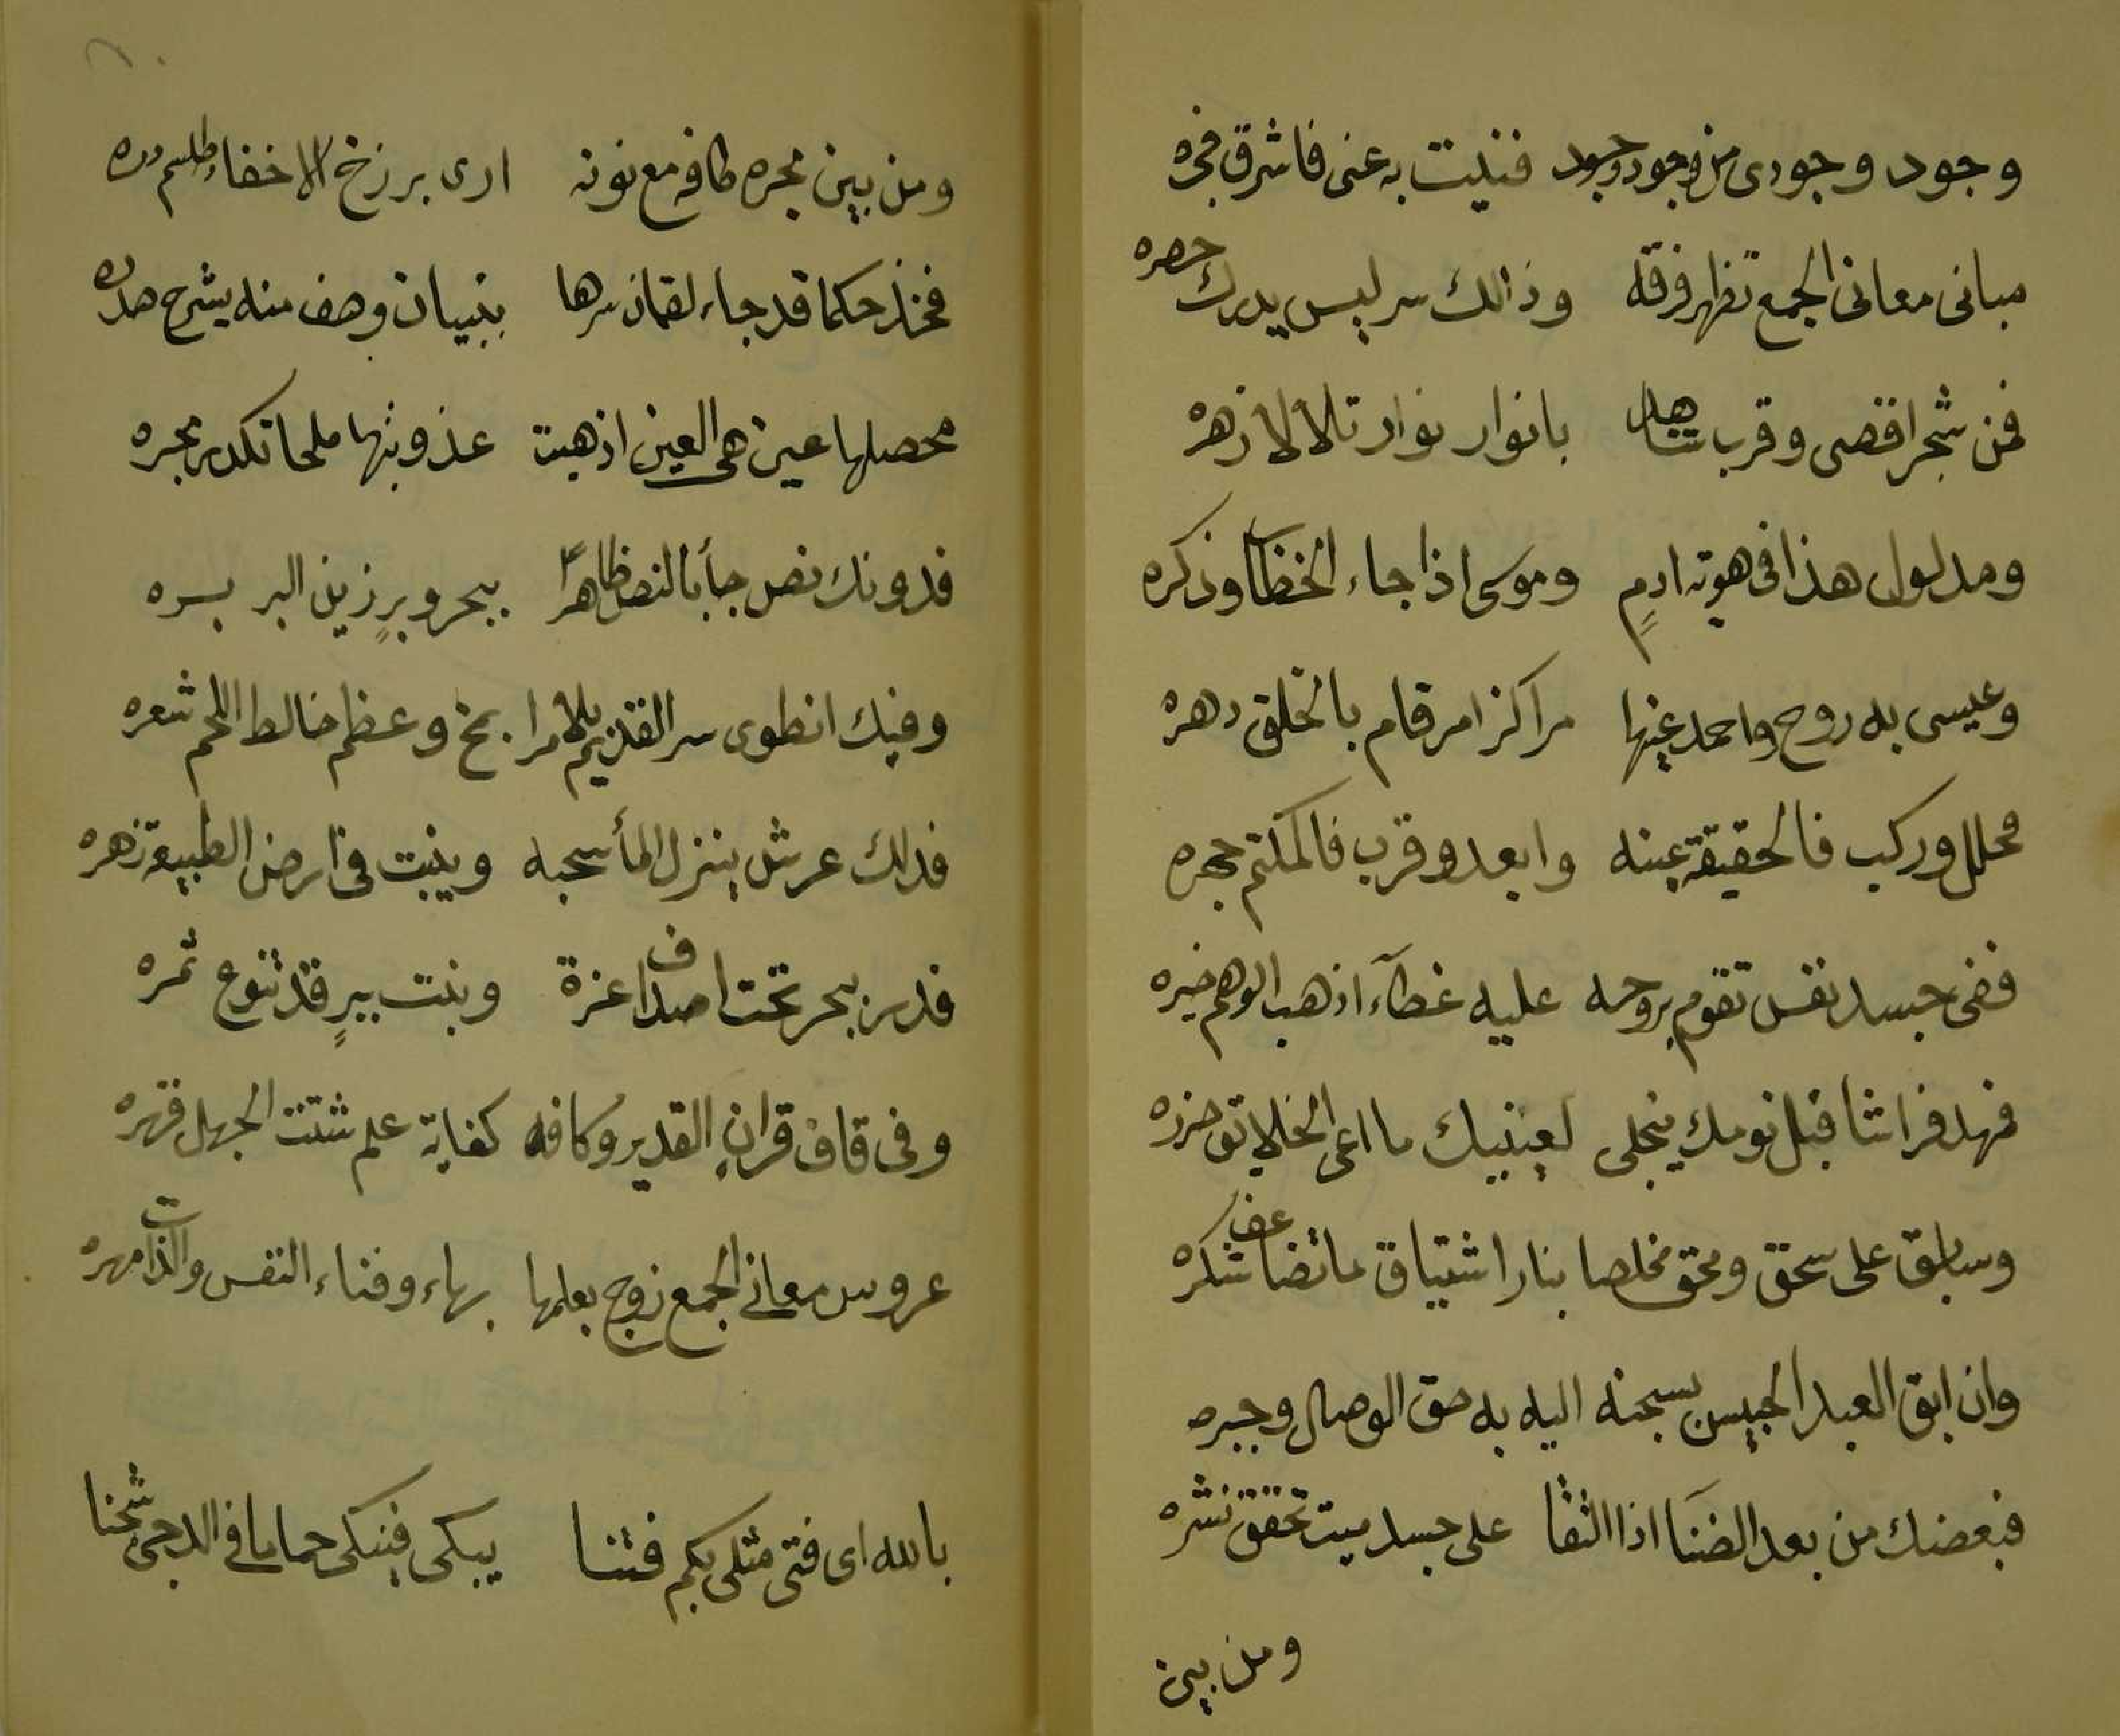 وجود وجودى من وجود وجود فنيت به عنى فاشرق فجره
مبانى معانى الجمع تظهر فرقه وذالك سر ليس يدرك حصره
فمن شجر اقصى وقرب شاهد بانوار نوار تلالالا زهره
ومدلول هذا فى هوته ادم وموسى اذا جاء الخطاب وذكره
وعيسى به روح واحمد عينها مراكز امر قام بالخلق دهره
محلل وركب فالحقيقة عينه وابعد وقرب فالمكتم جهره
ففى جسد نفس تقوم بروحه عليه غطآء اذهب الوهم خبره
فمهد فراشا قبل نومك ينجلى لعينيك ما اعى الخلايق حزره
وسابق على سحق ومحق مخلصا بنار اشتياق ما تضاعف شكره
وان ابق العبد الحبيس بسجنه اليه به حق الوصال وجبره
فبعضك من بعد الضنا اذا التقا على جسد ميت تحقق نشره
ومن بين
ومن بين مجره كافه مع نونه ارى برزخ الاخفاء طلسم دره
فخذ حكما قد جاء لقمان سرها بتبيان وصف منه يشرح صدره
محصلها عين هى العين اذهبت عذوبتها ملحا تكدر مجره
فدونك نص جأ بالنص ظاهرًا ببحر وبرٍ زين البر بسره
وفيك انطوى سر القديم بلا مرا بمخ وعظم خالط اللحم شعره
فذلك عرش ينزل المأ سحبه وينبت فى ارض الطبيعة زهره
فدر ببحر تحت اصداف عزة وبنت ببرٍ قد تنوع ثمره
وفى قاف قران القدير وكافه كفاية علم شتت الجهل قهره
عروس معانى الجمع زوج بعلها بهاء وفناء النفس والذات مهره
بالله اى فتى مثلى بكم فتنا يبكى فيبكى حماما فى الدجى شجنا